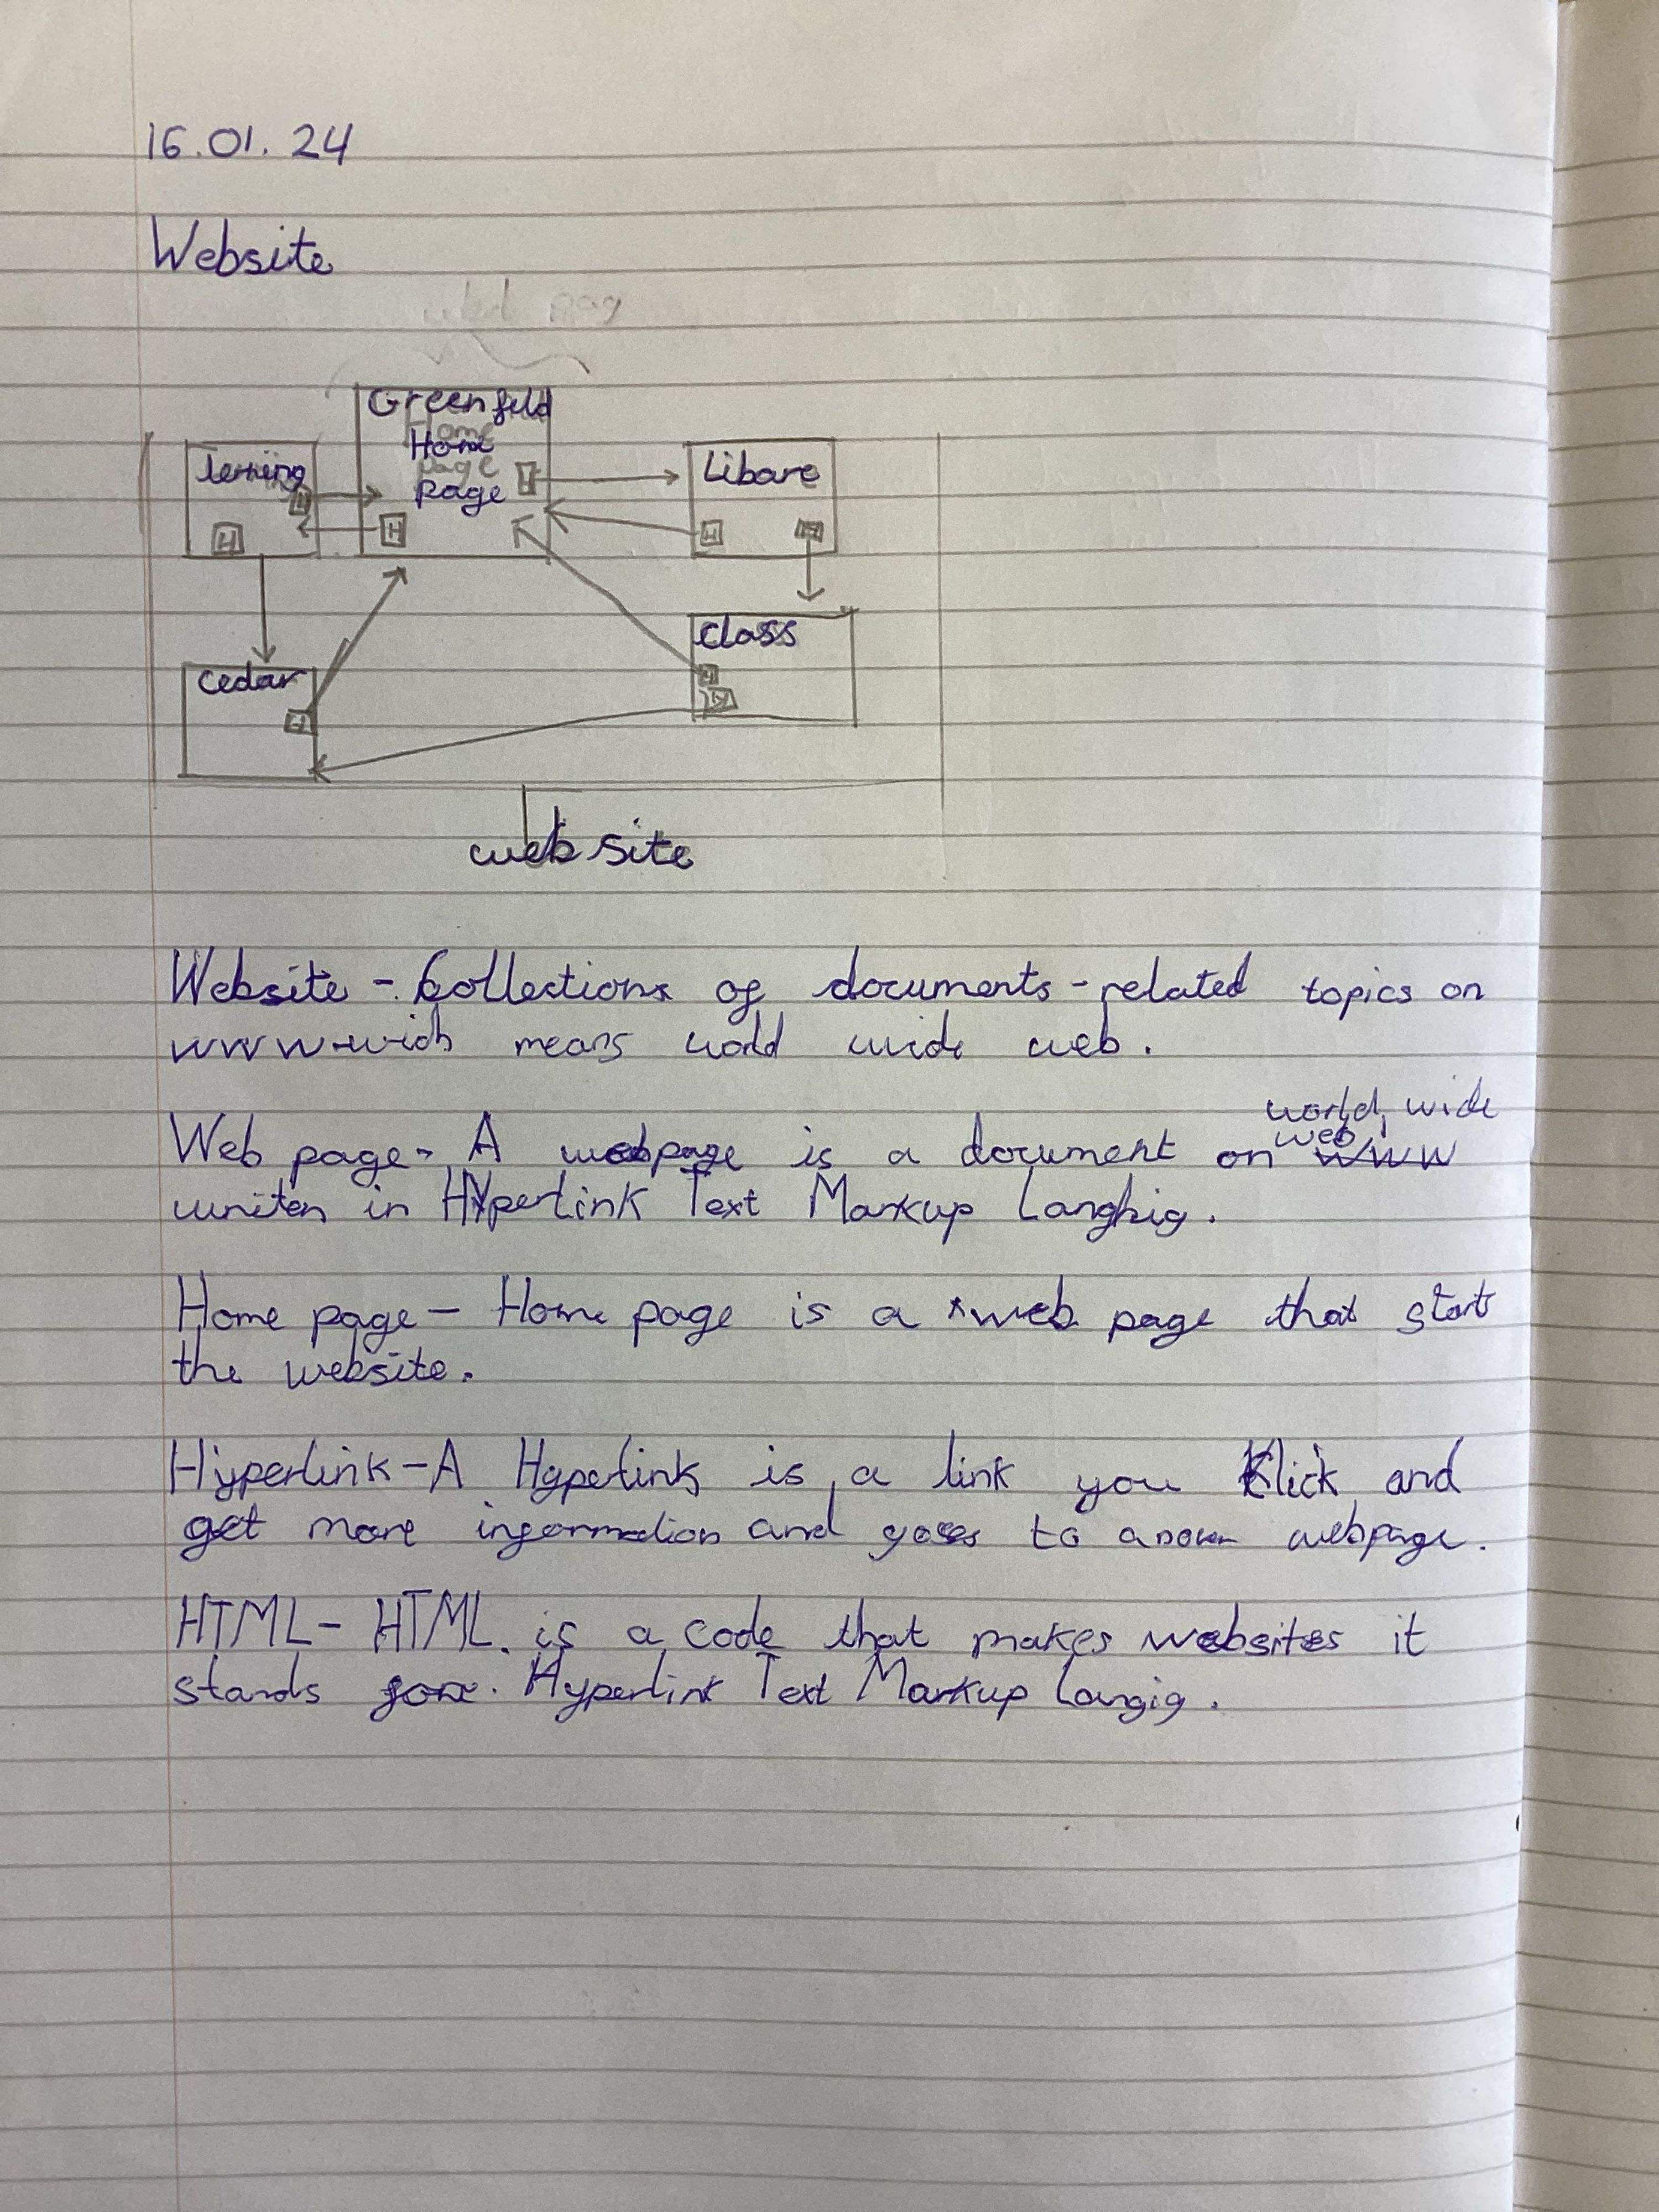 16.01.24
Website
Greenfeild
Home
page
lerning
H
H
Libare
H
class
cedar
H
web site
Website - Collections of documents - related topics on
www-wich means world wide web.
world wide
web
Web page - A webpage is a document on www
writen in HYperlink Text Markup
Home page - Home page is a web page that start
the website.
Hyperlink - A Hyperlink is a link you Klick and
get more information and goes to webpage.
HTML - HTML is a code that makes websites it
stands Hyperlink Text Markup Langig.